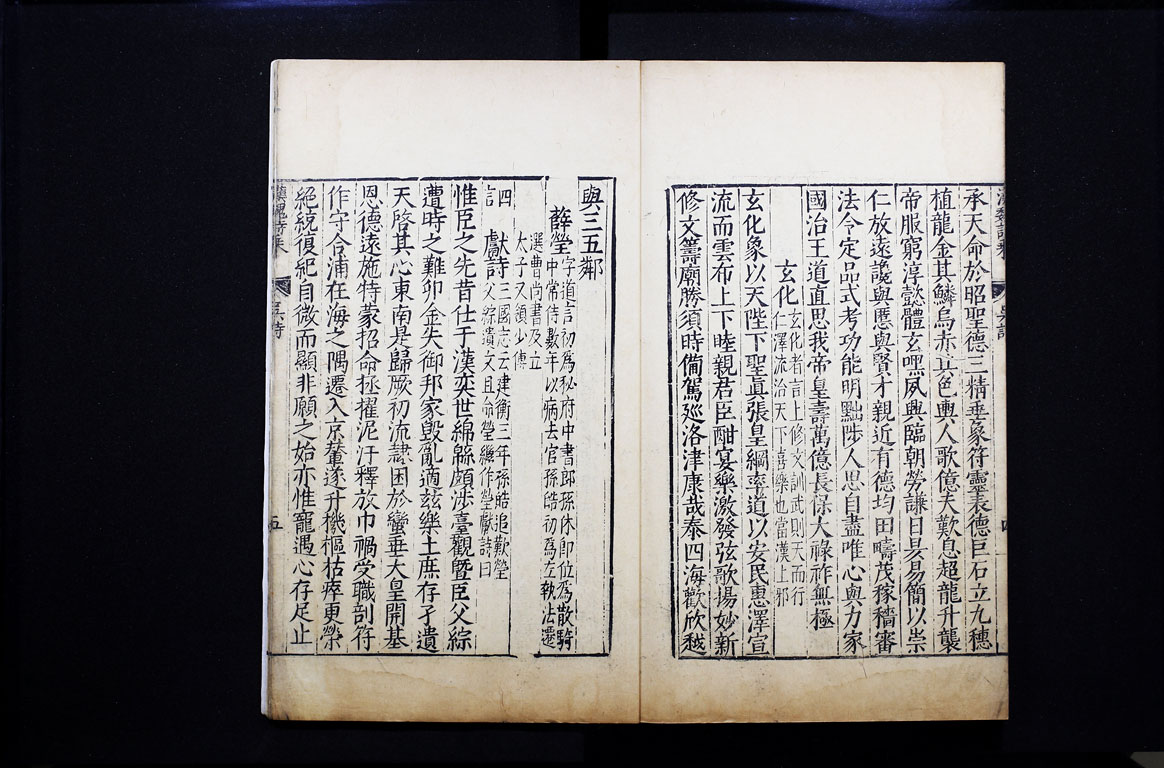 承天命於昭聖德三精垂象符靈表德巨石立九穗
植龍金其鱗烏赤其色輿人歌億夫歎息超龍升襲
帝服窮淳懿體玄嘿夙興臨朝勞謙日昃易簡以崇
仁放遠讒與慝舉賢才親近有德均田疇茂稼穡審
法令定品式考功能明黜陟人思自盡唯心與力家
國治王道直思我帝皇壽萬億長保天祿祚無極
玄化
玄化者言上修文訓武則天而行
仁澤流洽天下喜樂也當漢上邪
玄化象以天陛下聖眞張皇綱率道以安民惠澤宣
流而雲布上下睦親君臣酣宴樂激發弦歌揚妙新
修文籌廟勝須時備駕廵洛津康哉泰四海歡欣越
漢魏詩乘
吳詩
與三五鄰
薛瑩
字道言初爲秘府中書郎孫休卽位爲散騎
中常侍數年以病去官孫皓初爲左執法遷
選曹尚書及立
太子又領少傅
四言
獻詩
三國志云建衡三年孫皓追歎瑩
父綜遺文且命瑩繼作瑩獻詩曰
惟臣之先昔仕于漢奕世綿緜頗涉臺觀曁臣父綜
遭時之難卯金失御邦家毁亂適茲樂土庶存孑遺
天啓其心東南是歸厥初流隸困於蠻垂大皇開基
恩德遠施特蒙招命拯擢泥汙釋放巾褐受職剖符
作守合浦在海之隅遷入京輦遂升機樞枯瘁更榮
絕統復紀自微而顯非願之始亦惟寵遇心存足止
漢魏詩乘
吳詩
五